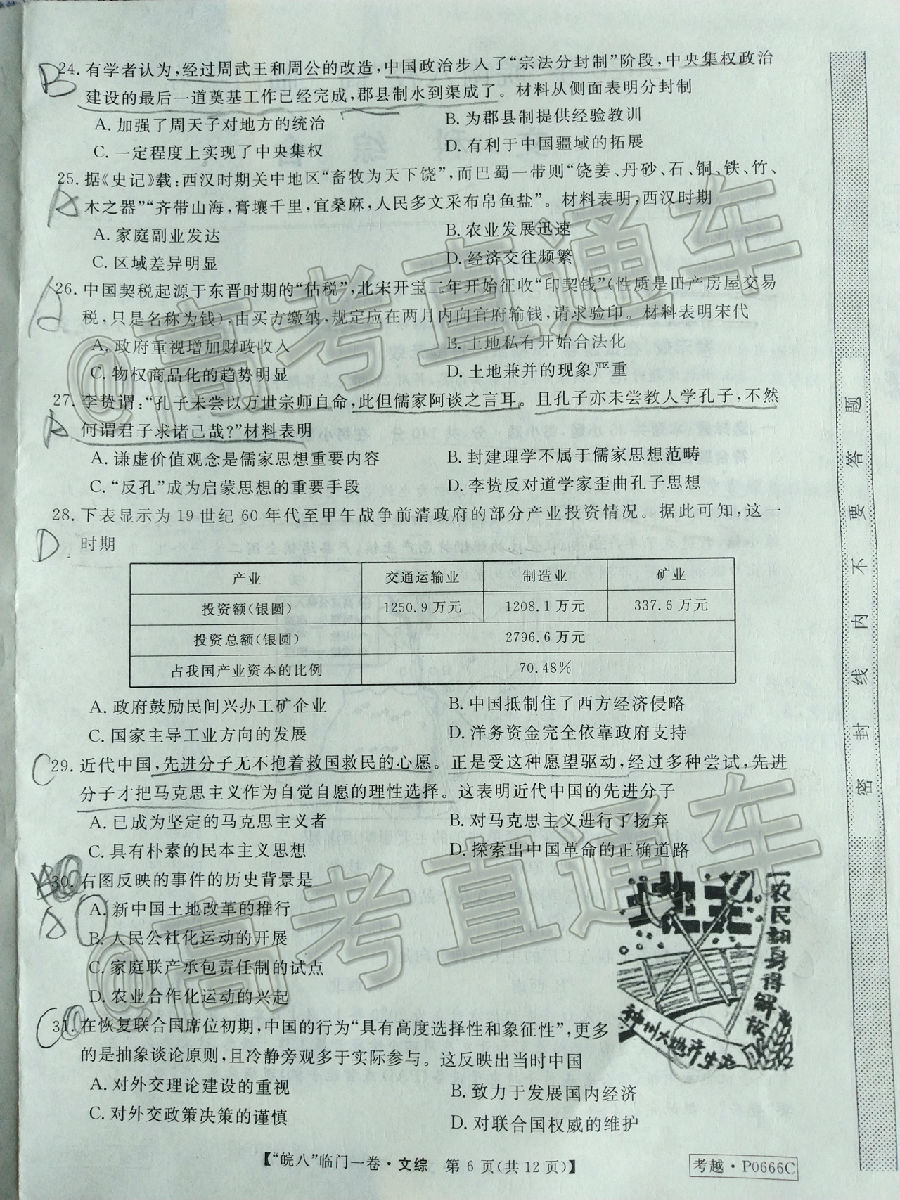 24. 有学者认为,经过周武王和周公的改造,中国政治步入了“宗法分封制”阶段,中央集权政治
建设的最后一道奠基工作已经完成,郡县制水到渠成了。材料从侧面表明分封制
A. 加强了周天子对地方的统治 B. 为郡县制提供经验教训
C. 一定程度上实现了中央集权 D. 有利于中国疆域的拓展
B
25. 据《史记》载:西汉时期关中地区“畜牧为天下饶”,而巴蜀一带则“饶姜、丹砂、石、铜、铁、竹、
木之器”“齐带山海,膏壤千里,宜桑麻,人民多文采布帛鱼盐”。材料表明,西汉时期
A. 家庭副业发达 B. 农业发展迅速
C. 区域差异明显 D. 经济交往频繁
A
26. 中国契税起源于东晋时期的“估税”,北宋开宝二年开始征收“印契钱”(性质是田产房屋交易
税,只是名称为钱),由买方缴纳,规定应在两月内向官府输钱,请求验印。材料表明宋代
A. 政府重视增加财政收入 B. 土地私有开始合法化
C. 物权商品化的趋势明显 D. 土地兼并的现象严重
27. 李贽谓:“孔子未尝以万世宗师自命,此但儒家阿谈之言耳。且孔子亦未尝教人学孔子,不然
何谓君子求诸己哉?”材料表明
A. 谦虚价值观念是儒家思想重要内容 B. 封建理学不属于儒家思想范畴
C. “反孔”成为启蒙思想的重要手段 D. 李贽反对道学家歪曲孔子思想
28. 下表显示为19世纪60年代至甲午战争前清政府的部分产业投资情况。据此可知,这一
时期
D
产业 交通运输业 制造业 矿业
投资额(银圆) 1250.9万元 1208.1万元 337.6万元
投资总额(银圆) 2796.6万元
占我国产业资本的比例 70.48%
A. 政府鼓励民间兴办工矿企业 B. 中国抵制住了西方经济侵略
C. 国家主导工业方向的发展 D. 洋务资金完全依靠政府支持
C
29. 近代中国,先进分子无不抱着救国救民的心愿。正是受这种愿望驱动,经过多种尝试,先进
分子才把马克思主义作为自觉自愿的理性选择。这表明近代中国的先进分子
A. 已成为坚定的马克思主义者 B. 对马克思主义进行了扬弃
C. 具有朴素的民本主义思想 D. 探索出中国革命的正确道路
30. 右图反映的事件的历史背景是
A. 新中国土地改革的推行
B. 人民公社化运动的开展
C. 家庭联产承包责任制的试点
D. 农业合作化运动的兴起
A
地主
农民翻身得解放
神州大地
31. 在恢复联合国席位初期,中国的行为“具有高度选择性和象征性”,更多
的是抽象谈论原则,且冷静旁观多于实际参与。这反映出当时中国
A. 对外交理论建设的重视 B. 致力于发展国内经济
C. 对外交政策决策的谨慎 D. 对联合国权威的维护
C
【“皖八”临门一卷·文综 第6页(共12页)】
考越·P0666C
密封线内不要答题
@高考直通车
@高考直通车